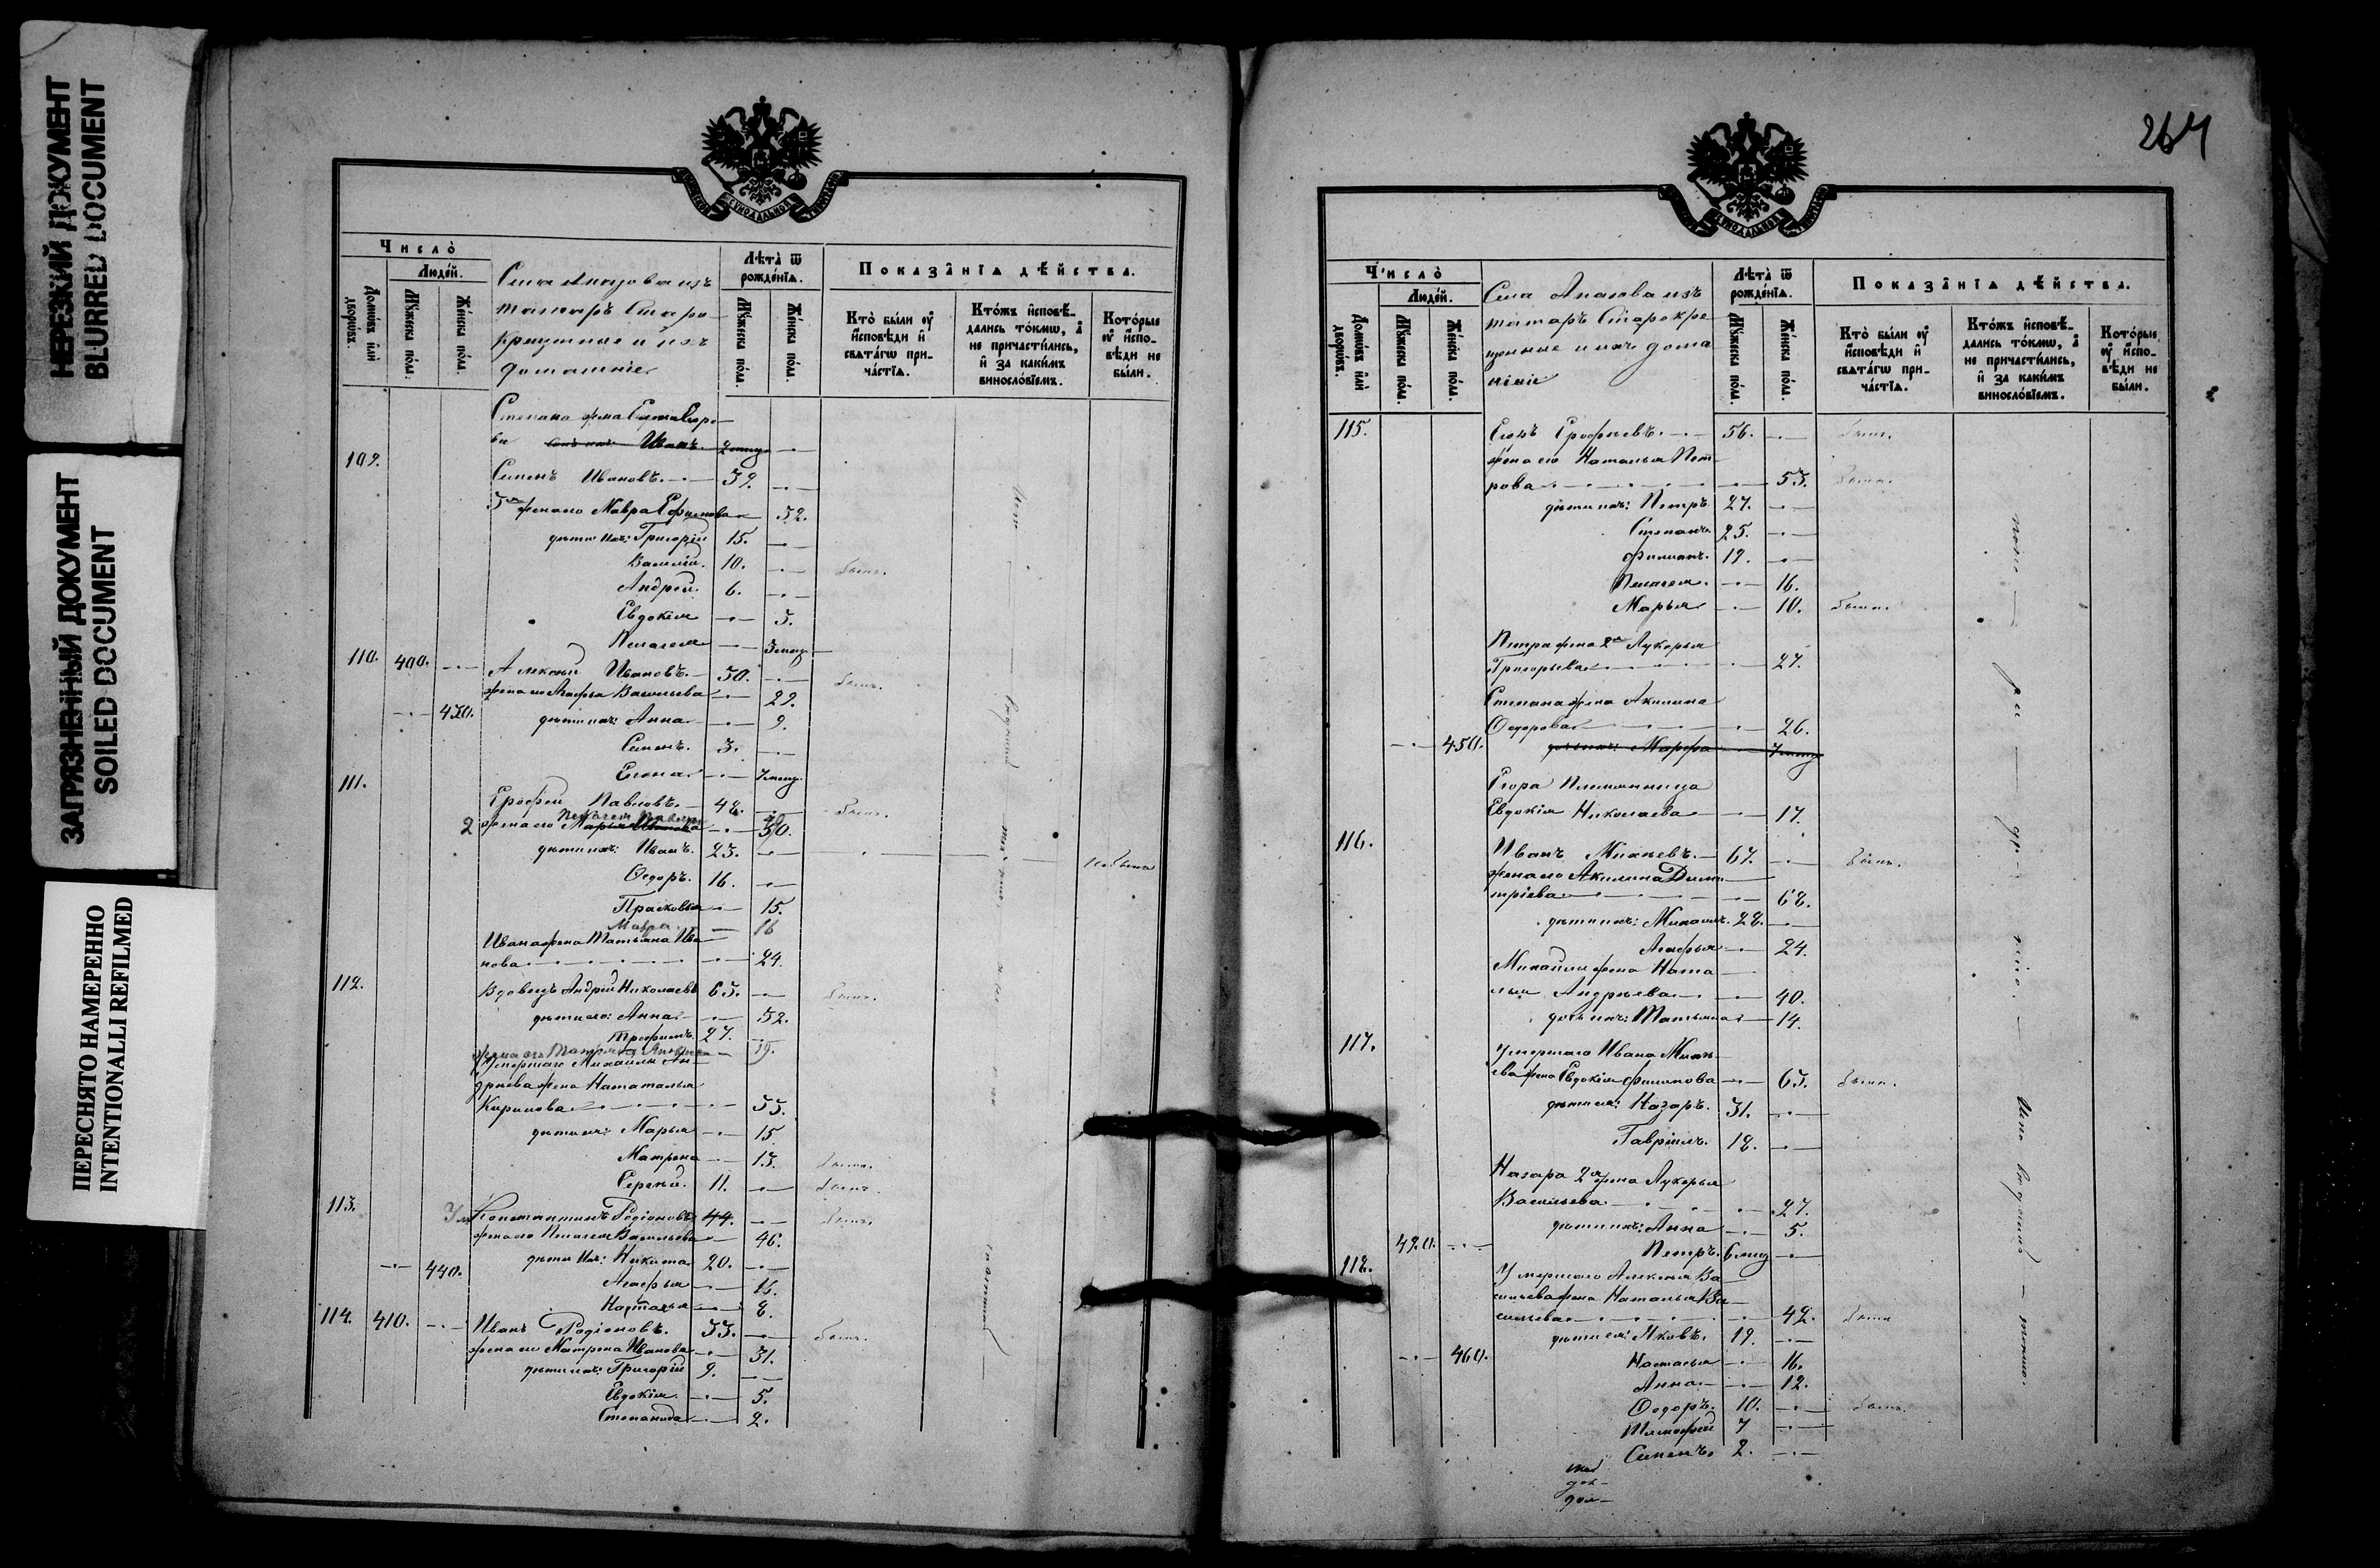 НЕРЕЗКИЙ ДОКУМЕНТ
BLURRED DOCUMENT
ЗАГРЯЗНЕННЫЙ ДОКУМЕНТ
SOILED DOCUMENT
ПЕРЕСНЯТО НАМЕРЕННО
INTENTIONALLI REFILMED
Число̀
Людей.
Домѡвъ или дворѡвъ.
Мꙋжеска полꙋ.
Женска полꙋ.
татаръ Старо
крещеные и ихъ
домашніе
Лѣта ѿ рожденїѧ.
Мꙋжеска полꙋ.
Женска полꙋ.
Показанїѧ дѣйства.
Кто были ᲂу҆ исповѣди и свѧтагѡ причастїѧ.
Ктожъ исповѣдались токмѡ, а не причастились, и за какимъ винословїемъ.
Которые ᲂу҆ исповѣди не были.
Степана жена
Иванъ
109. Семенъ Ивановъ. 39.
жена его Мавра Ефимова 32.
дѣти ихъ: Григорій 15.
Василій. 10. былъ.
Андрей. 6.
Евдокія 3.
Пелагея 3 мѣс.
110. 400. Алексѣй Ивановъ. 30. былъ.
жена его Агафья Васильева 29.
430. дѣти ихъ: Анна 9.
Семенъ. 3.
Елена 7 мѣс.
111. Ерофей Павловъ. 48. былъ.
2 жена его Марья Иванова 50.
дѣти ихъ: Иванъ. 23. небылъ
Ѳедоръ. 16.
Прасковья 15.
Мавра 16
Ивана жена Татьяна Ива
нова 24.
112. Вдовецъ Андрей Николаевъ 65. былъ.
дѣти его: Анна 32.
Трофимъ. 27.
19.
Умершаго Михаила Ан
дреева жена Наталья
Кирилова 35.
дѣти ея: Марья 15
Матрена 13. была.
Сергѣй. 11. былъ.
113. Константинъ Родіоновъ 44. былъ.
жена его Пелагея Васильева 46.
дѣти ихъ: Никита 20.
440. Агафья 16.
Наталья 8.
114. 410. Иванъ Родіоновъ. 33. былъ.
жена его Матрена Иванова 31.
дѣти ихъ: Григорій 9.
Евдокія. 5.
Степанида 2.
264
Число̀
Людей.
Домѡвъ или дворѡвъ.
Мꙋжеска полꙋ.
Женска полꙋ.
татаръ Старокре
щеные и ихъ дома
шніе
Лѣта ѿ рожденїѧ.
Мꙋжеска полꙋ.
Женска полꙋ.
Показанїѧ дѣйства.
Кто были ᲂу҆ исповѣди и свѧтагѡ причастїѧ.
Ктожъ исповѣдались токмѡ, а не причастились, и за какимъ винословїемъ.
Которые ᲂу҆ исповѣди не были.
115. Егоръ Ерофѣевъ. 56. былъ.
жена его Наталья Пет
рова 53. была.
дѣти ихъ: Петръ 27.
Степанъ. 25.
Филипъ. 19.
Пелагея. 16.
Марья 10. была.
Петра жена 2я Лукерья
Григорьева 27.
Степана жена Акилина
Ѳедорова 26.
450. дочь ихъ: Марфа 7 мѣс
Егора Племянница
Евдокія Николаева 17.
116. Иванъ Михѣевъ. 67. былъ.
жена его Акилина Дими
тріева 68.
дѣти ихъ: Михаилъ. 28.
Агафья 24.
Михаила жена Ната
лья Андреева 40.
дочь ихъ: Татьяна 14.
117. Умершаго Ивана Михѣ
ева жена Евдокія Филипова 65. была.
дѣти ея: Назаръ. 31.
Гавріилъ. 18.
Назара 2я жена Лукерья
Васильева 27.
дѣти ихъ: Анна 5.
420. Петръ. 6 мѣс
118. Умершаго Алексѣя Ва
сильева жена Наталья Ва
сильева 42. была
дѣти ея: Яковъ. 19.
460. Наталья 16.
Анна 12.
Ѳедоръ. 10. былъ.
Тимофей 7
Семенъ. 2.